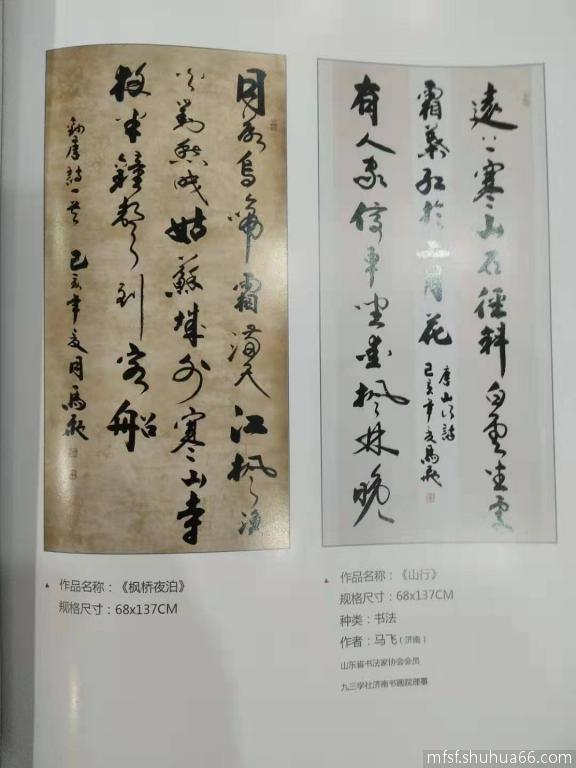 月落烏啼霜滿天江楓漁
火對愁眠姑蘇城外寒山寺
夜半鐘聲到客船
錄唐詩一首 己亥年夏月馬飛
遠上寒山石徑斜白雲生處
有人家停車坐愛楓林晚
霜葉紅於二月花
唐山行詩
己亥年夏馬飛
作品名称：《枫桥夜泊》
规格尺寸：68x137CM
作品名称：《山行》
规格尺寸：68x137CM
种类：书法
作者：马飞（济南）
山东省书法家协会会员
九三学社济南书画院理事
mfsf.shuhua66.com